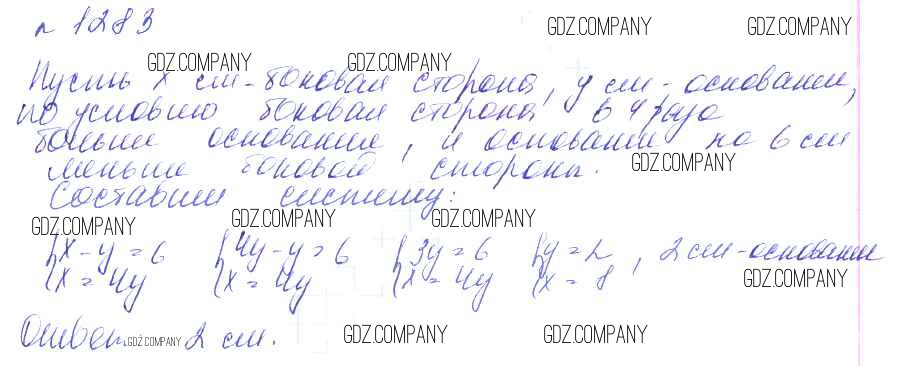 № 1283
GDZ.COMPANY GDZ.COMPANY
GDZ.COMPANY GDZ.COMPANY
Пусть x см - боковая сторона, y см - основание,
по условию боковая сторона в 4 раза
больше основание, и основание на 6 см
меньше боковой стороны.
GDZ.COMPANY
Составим систему:
GDZ.COMPANY GDZ.COMPANY GDZ.COMPANY
{x - y = 6 {4y - y = 6 {3y = 6 {y = 2, 2 см - основание
{x = 4y {x = 4y {x = 4y {x = 8
GDZ.COMPANY
Ответ 2 см.
GDZ.COMPANY GDZ.COMPANY GDZ.COMPANY